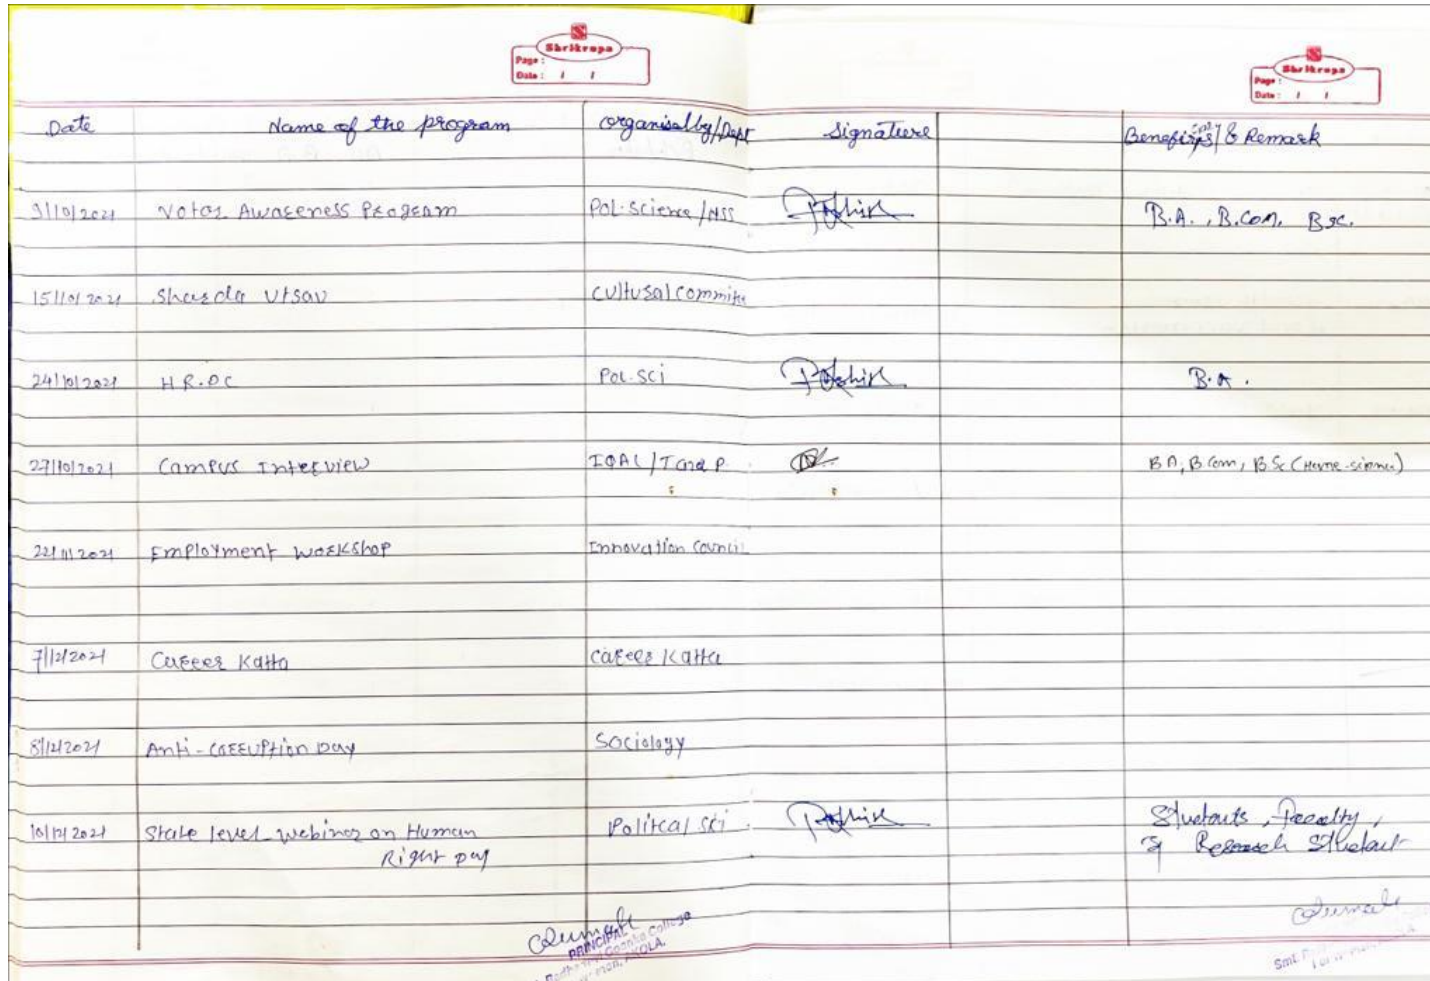 Shrikrupa
Page :
Date : / /
Shrikrupa
Page :
Date : / /
Date Name of the program organised by/Dept Signature Benefits & Remark
9/10/2021 Voter Awareness Program Pol. Science/NSS B.A., B.Com, BSC.
15/10/2021 Sharda Utsav Cultural Committe
24/10/2021 HR.DC Pol.Sci B.A.
27/10/2021 Campus Interview IQAC/ BA, B.Com, BSc (Home-science)
22/11/2021 Employment Workshop Innovation Council
7/12/2021 Career Katta Career Katta
8/12/2021 Anti-Corruption Day Sociology
10/12/2021 State level webinar on Human Political Sci Students, Faculty,
Right Day & Research Student
PRINCIPAL
College
AKOLA.
Smt.